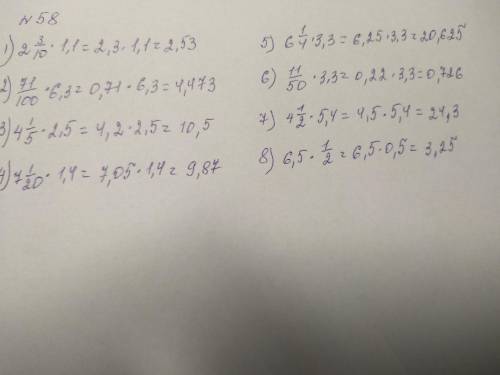 №58
1) 2 3/10 · 1,1 = 2,3 · 1,1 = 2,53
2) 71/100 · 6,3 = 0,71 · 6,3 = 4,473
3) 4 1/5 · 2,5 = 4,2 · 2,5 = 10,5
4) 7 1/20 · 1,4 = 7,05 · 1,4 = 9,87
5) 6 1/4 · 3,3 = 6,25 · 3,3 = 20,625
6) 11/50 · 3,3 = 0,22 · 3,3 = 0,726
7) 4 1/2 · 5,4 = 4,5 · 5,4 = 24,3
8) 6,5 · 1/2 = 6,5 · 0,5 = 3,25